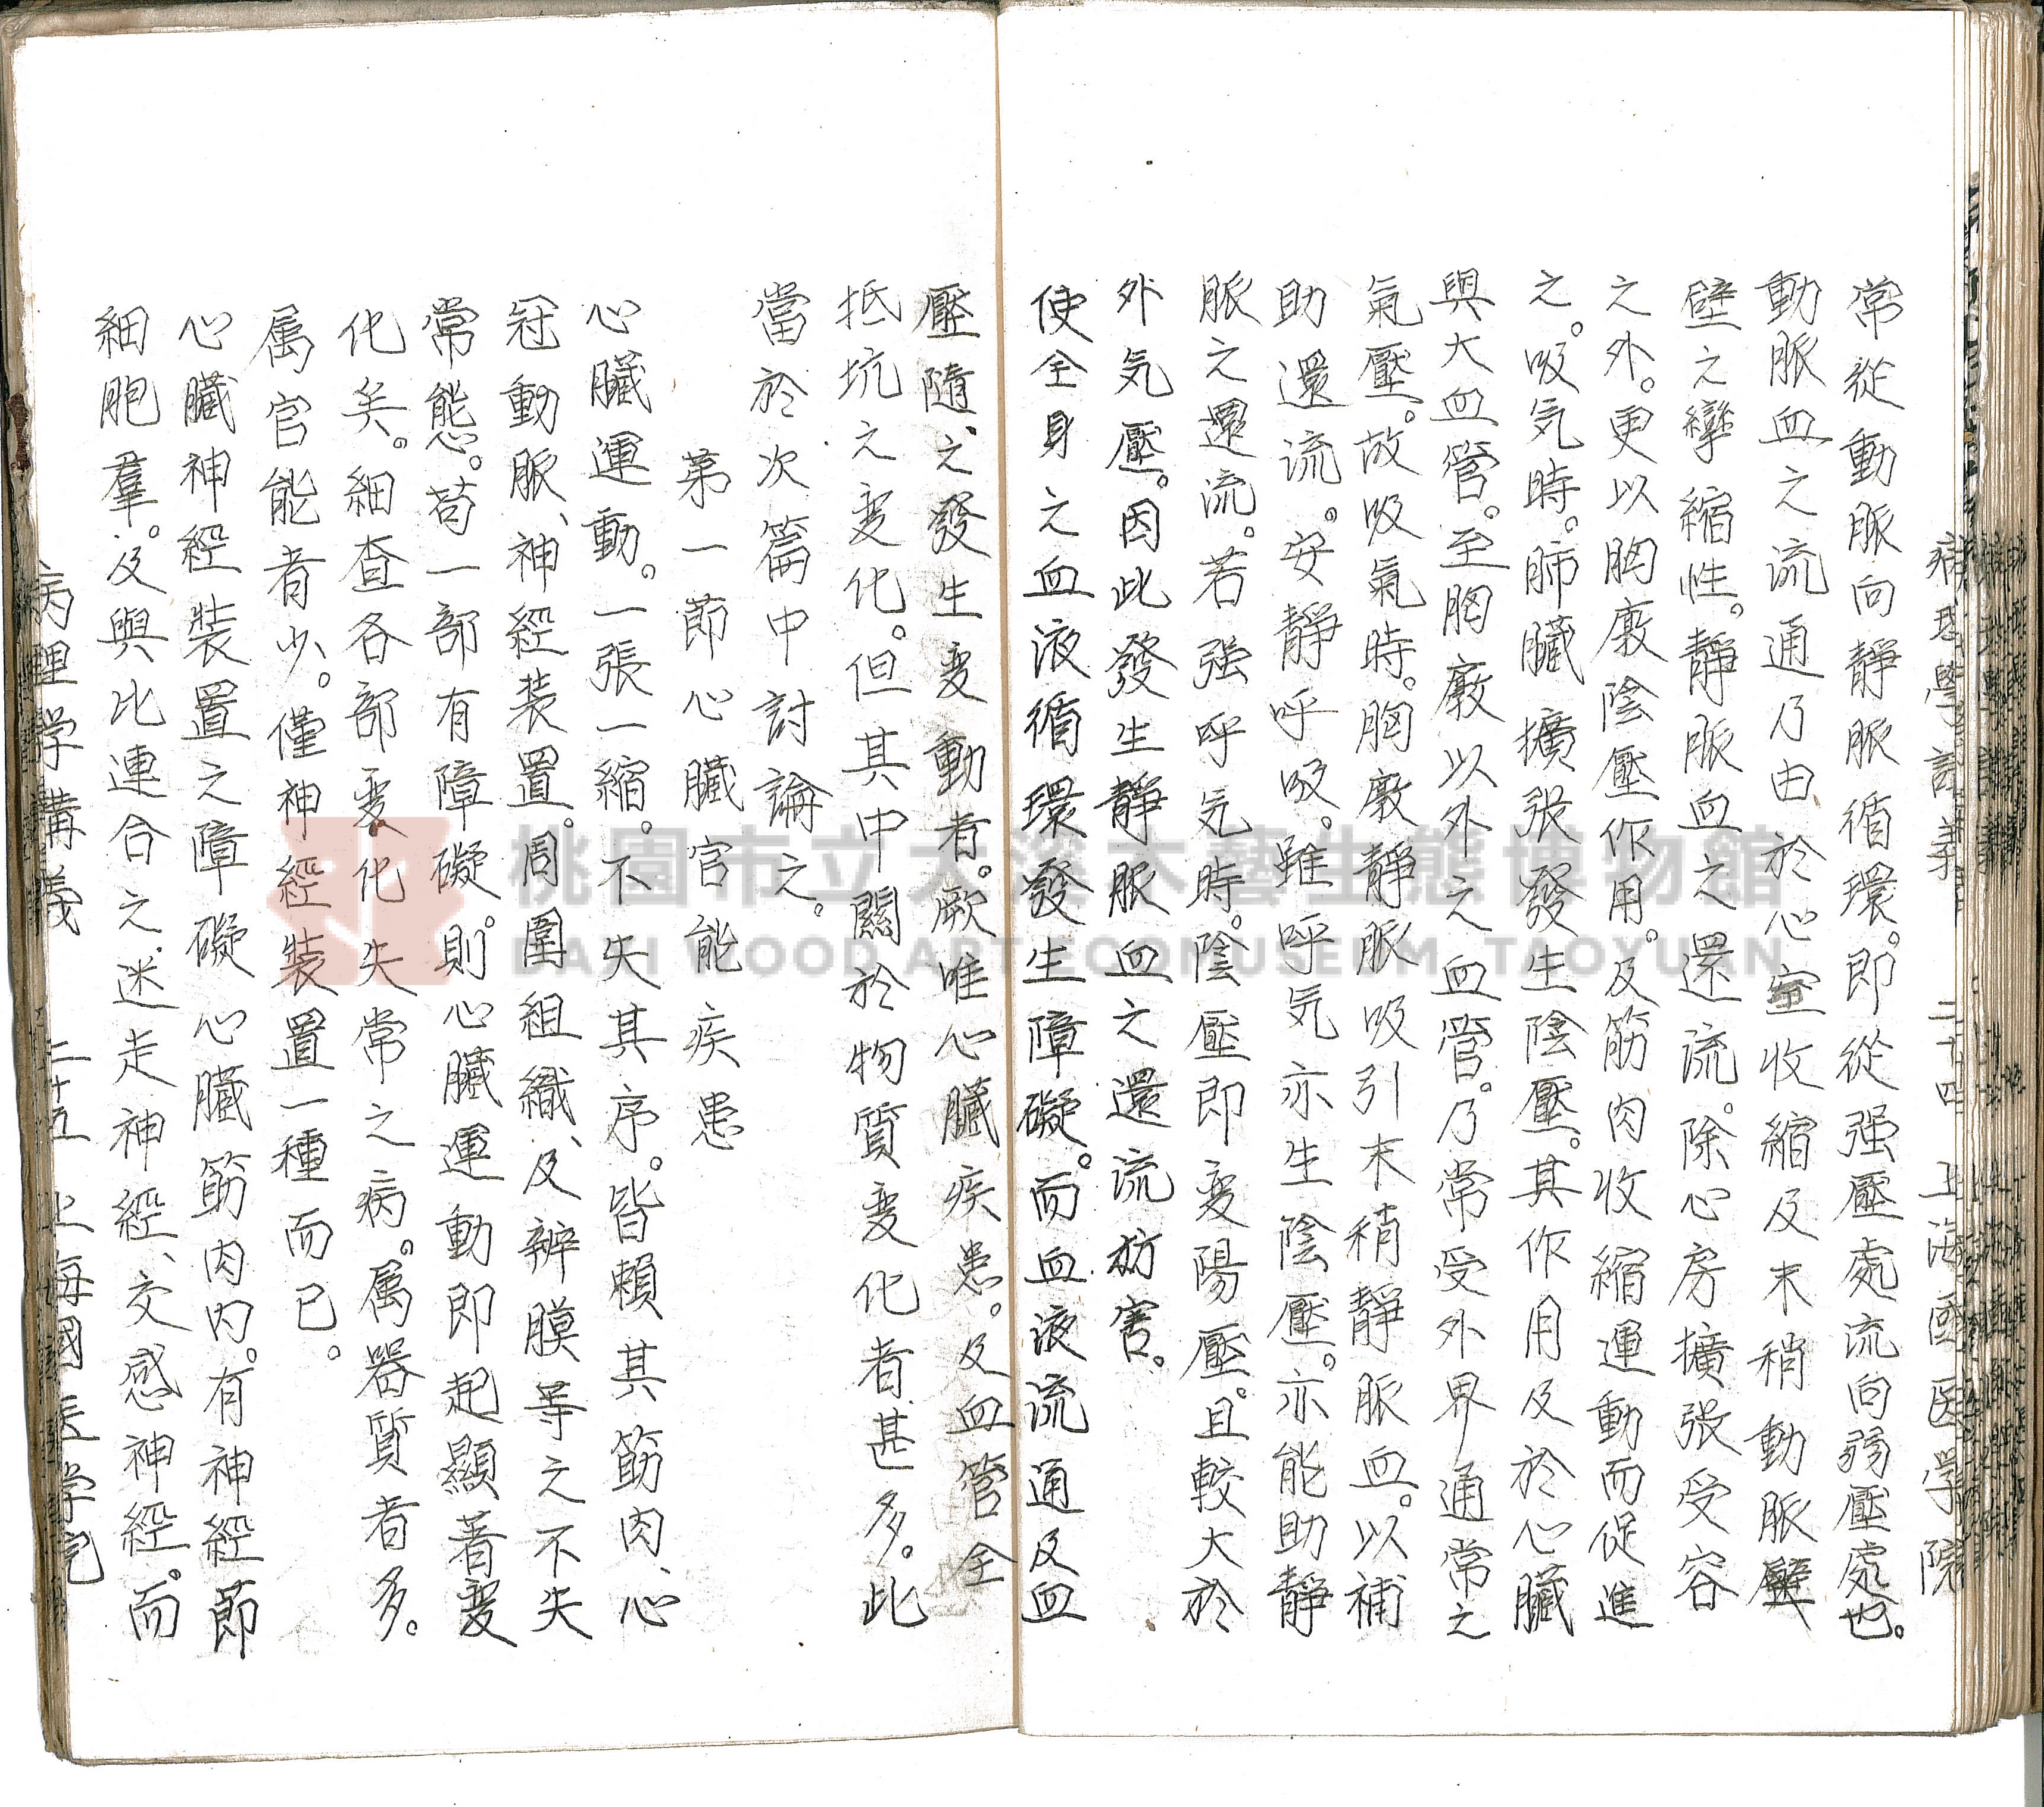 病理學講義 二十四 上海國医学院
常從動脈向靜脈循環。即從强壓處流向弱壓處也。
動脈血之流通乃由於心室收縮及末稍動脈壁
壁之攣縮性。靜脈血之還流。除心房擴張受容
之外。更以胸廠陰壓作用。及筋肉收縮運動而促進
之。吸気時。肺臟擴張發生陰壓。其作用及於心臟
與大血管。至胸廠以外之血管。乃常受外界通常之
氣壓。故吸氣時。胸廠靜脈吸引末稍靜脈血。以補
助還流。安靜呼吸。雖呼気亦生陰壓。亦能助靜
脈之還流。若强呼気時。陰壓即変陽壓。且較大於
外気壓。因此發生靜脈血之還流妨害。
使全身之血液循環發生障礙。而血液流通及血
壓隨之發生変動者。厥唯心臟疾患。及血管全
抵坑之変化。但其中關於物質変化者甚多。此
當於次篇中討論之。
第一節心臟官能疾患
心臟運動。一張一縮。不失其序。皆賴其筋肉、心
冠動脈、神經装置。周圍組織、及辨膜等之不失
常態。苟一部有障礙。則心臟運動即起顯著変
化矣。細查各部変化失常之病。属器質者多。
属官能者少。僅神經裝置一種而已。
心臟神經裝置之障礙心臟筋肉内。有神經節
細胞羣。及與比連合之迷走神經、交感神經。而
病理学講義 二十五 上海國医学院
桃園市立大溪木藝生態博物館
DAXI WOOD ART ECOMUSEUM, TAOYUAN